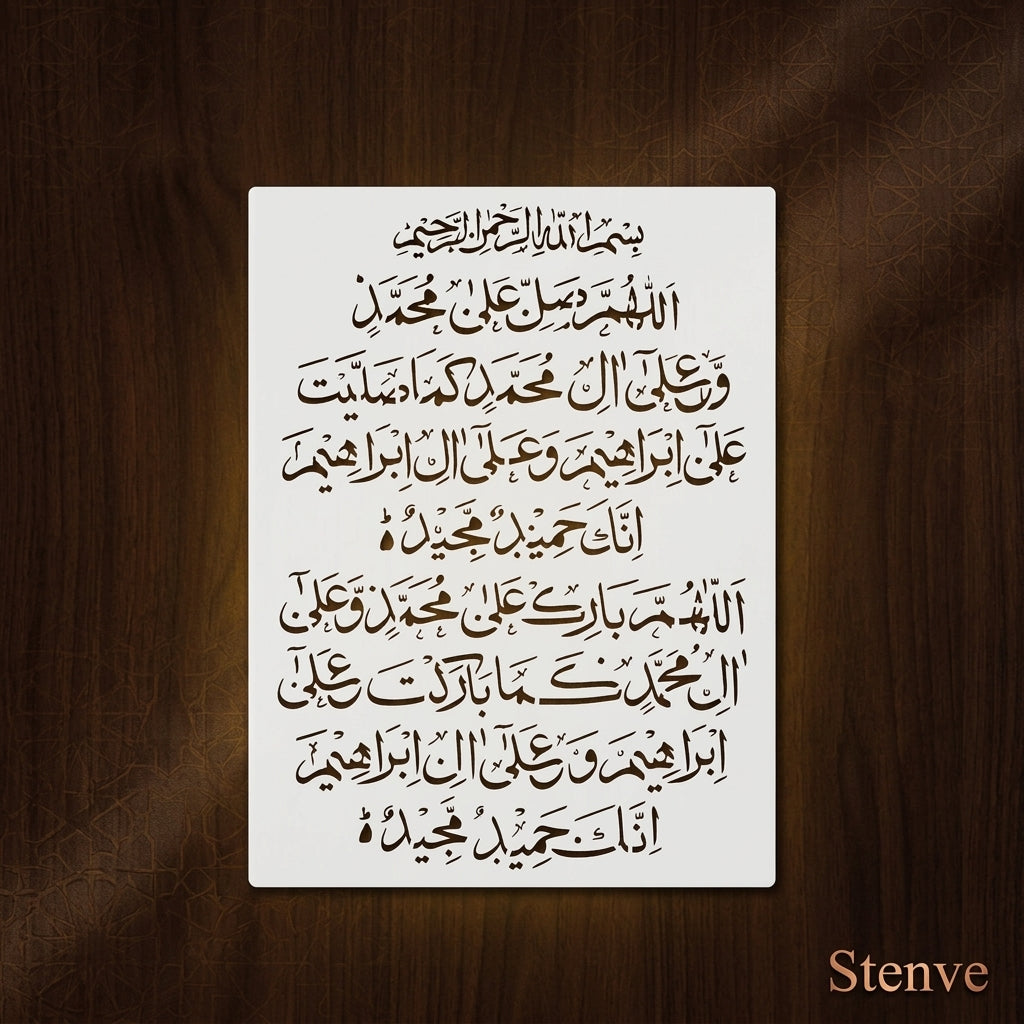 بِسْمِ اللّٰهِ الرَّحْمٰنِ الرَّحِيْمِ
اَللّٰهُمَّ صَلِّ عَلٰى مُحَمَّدٍ
وَّعَلٰٓى اٰلِ مُحَمَّدٍ كَمَا صَلَّيْتَ
عَلٰٓى اِبْرَاهِيْمَ وَعَلٰٓى اٰلِ اِبْرَاهِيْمَ
اِنَّكَ حَمِيْدٌ مَّجِيْدٌ ؕ
اَللّٰهُمَّ بَارِكْ عَلٰى مُحَمَّدٍ وَّعَلٰٓى
اٰلِ مُحَمَّدٍ كَمَا بَارَكْتَ عَلٰٓى
اِبْرَاهِيْمَ وَعَلٰٓى اٰلِ اِبْرَاهِيْمَ
اِنَّكَ حَمِيْدٌ مَّجِيْدٌ ؕ
Stenve